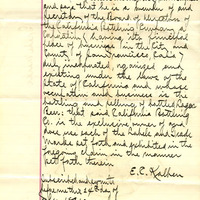 and says that he is a member of and
Secretary of the Board of Directors of
the California Bottling Company a
Corporation (having its principal
place of business in the City and
County of San Francisco Cal.)
duly incorporated, organized and
existing under the laws of the
State of California and whose
occupation and business is in the
bottling and selling of bottled Lager
Beer: that said California Bottling
Co. is the exclusive owner of and
does use each of the Labels and Trade
Marks set forth and exhibited in the
foregoing claim in the manner
set forth therein
E. C. Kalben
Subscribed and sworn to
before me this day of